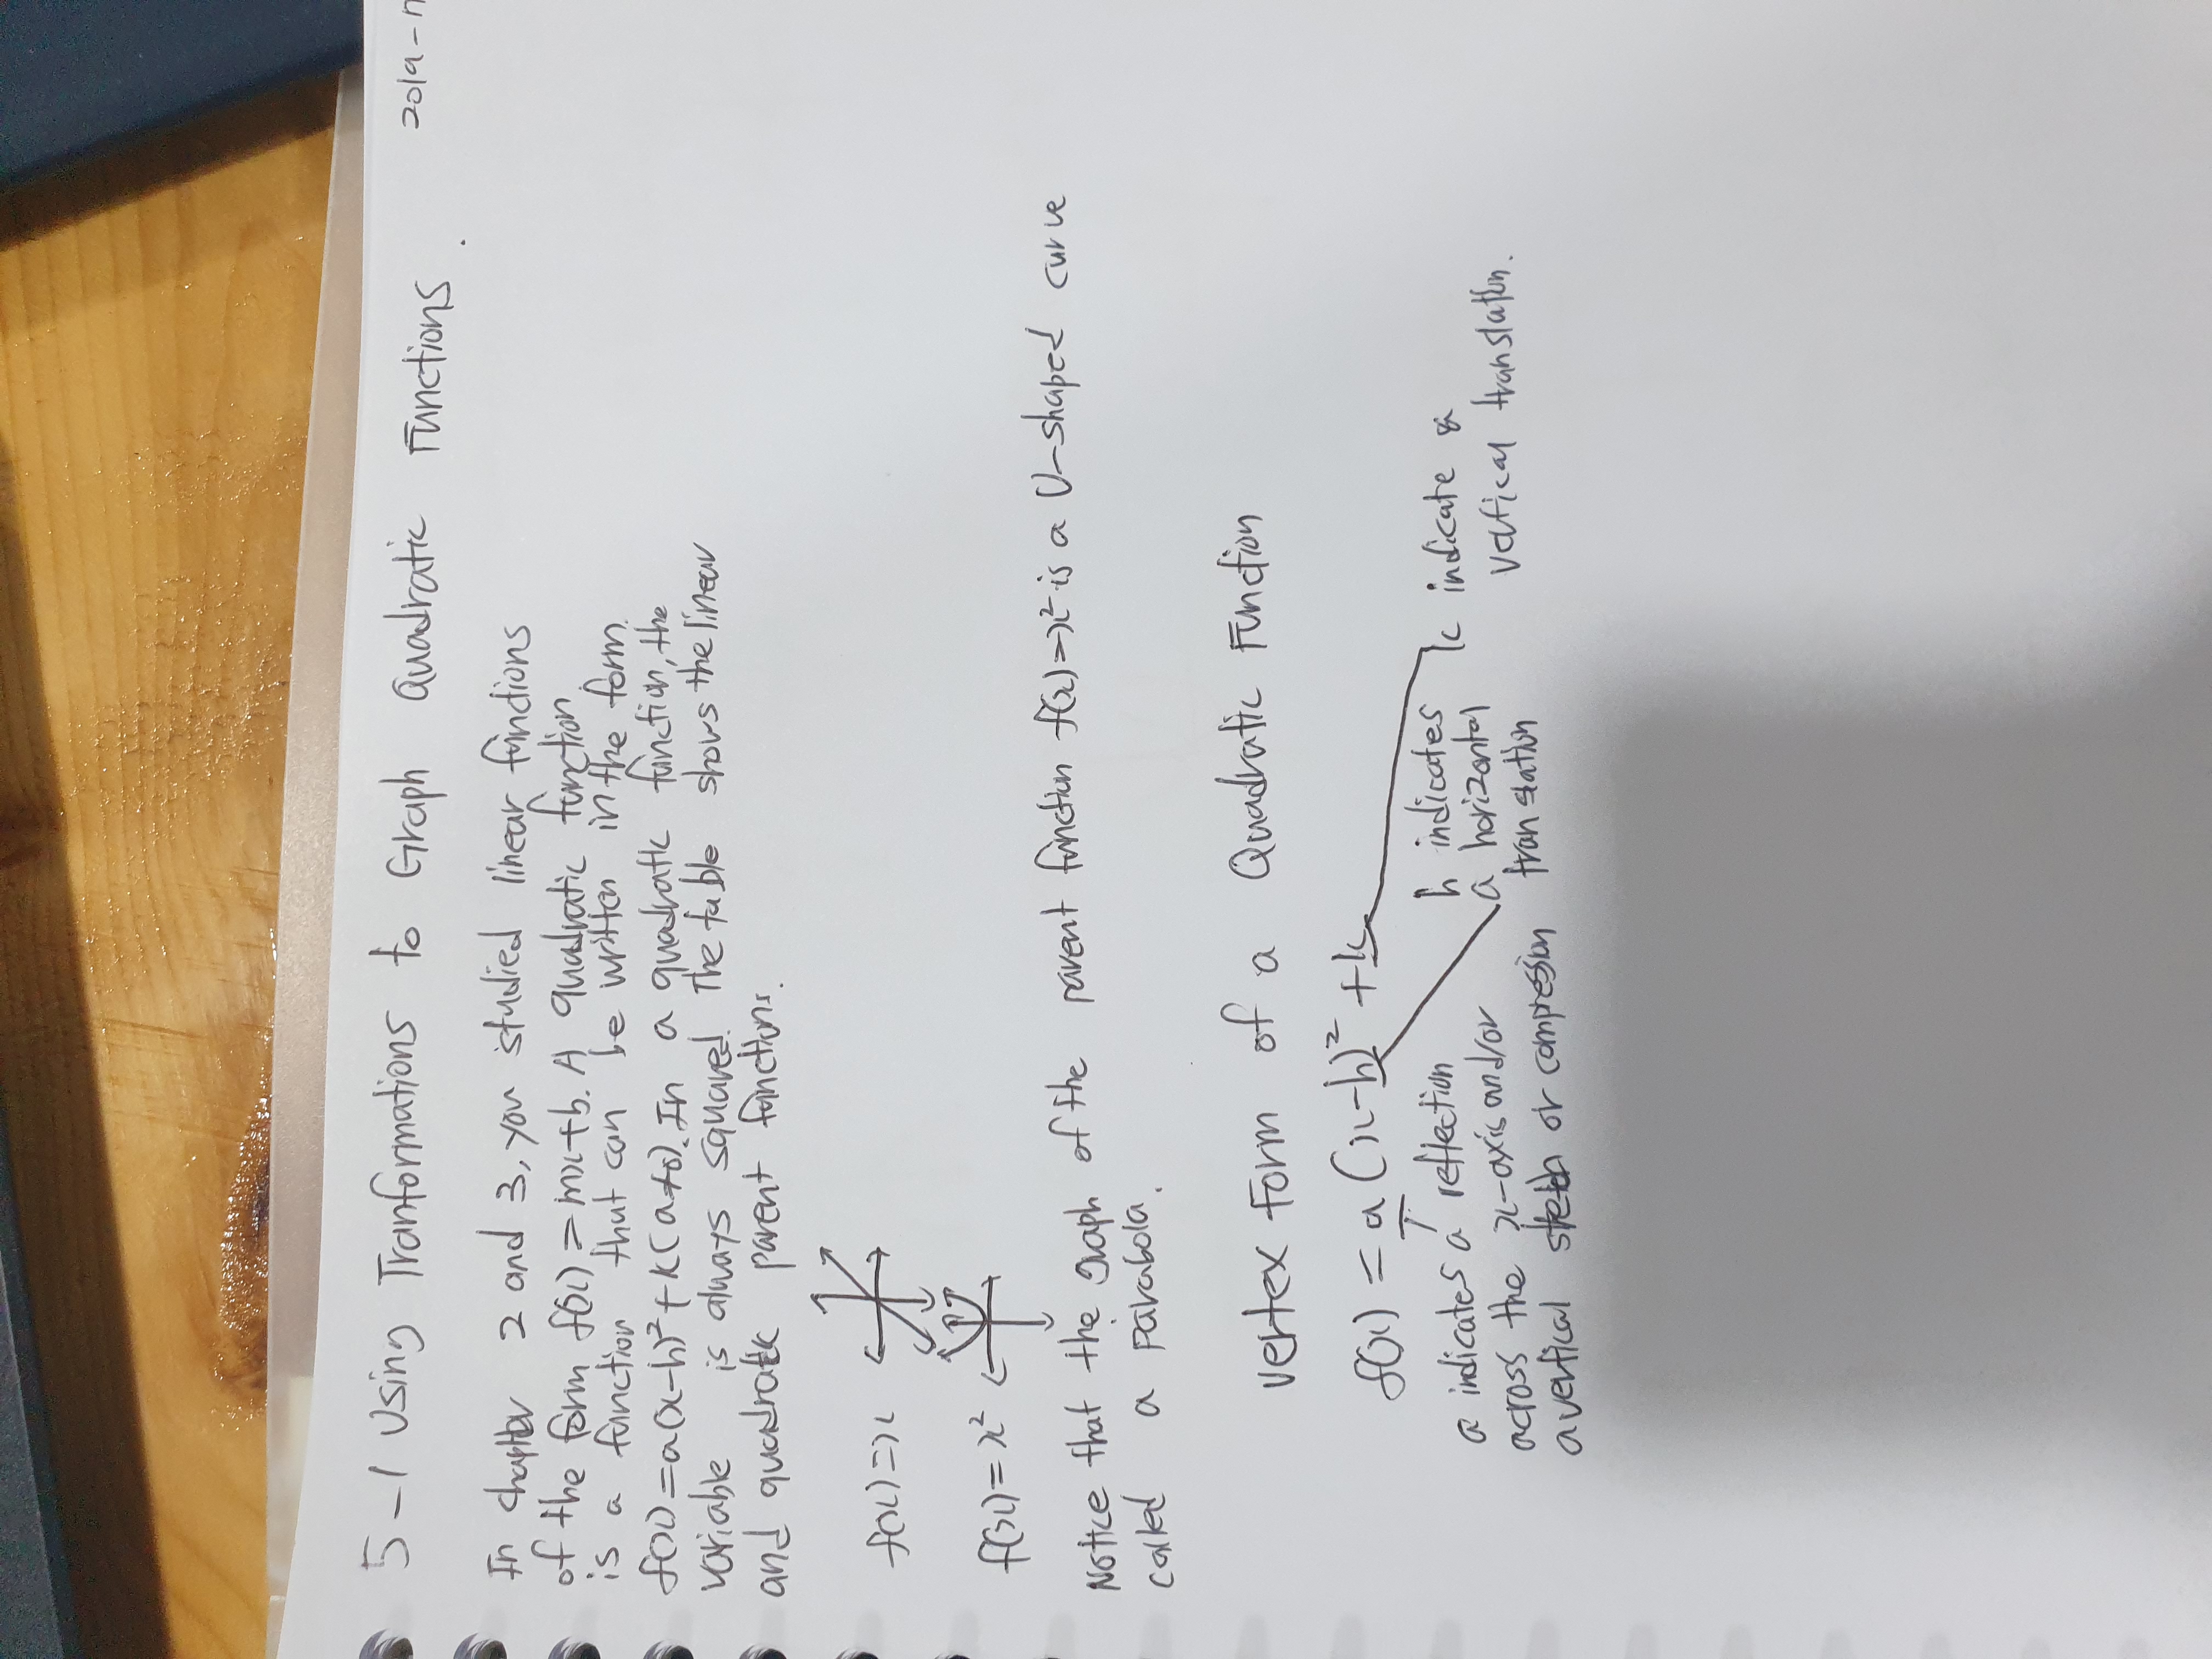 2019-
5-1 Using Tranformations to Graph Quadratic Functions.
In chapter 2 and 3, you studied linear functions
of the form f(x)=mx+b. A quadratic function
is a function that can be written in the form
f(x)=a(x-h)²+k(a≠0). In a quadratic function, the
variable is always squared. The table shows the linear
and quadratic parent functions.
f(x)=x
f(x)=x²
Notice that the graph of the parent function f(x)=x² is a U-shaped curve
called a parabola.
Vertex form of a Quadratic Function
f(x)=a(x-h)²+k
a indicates a reflection
across the x-axis and/or
a vertical stretch or compression
h indicates
a horizontal
translation
k indicate a
vertical translation.